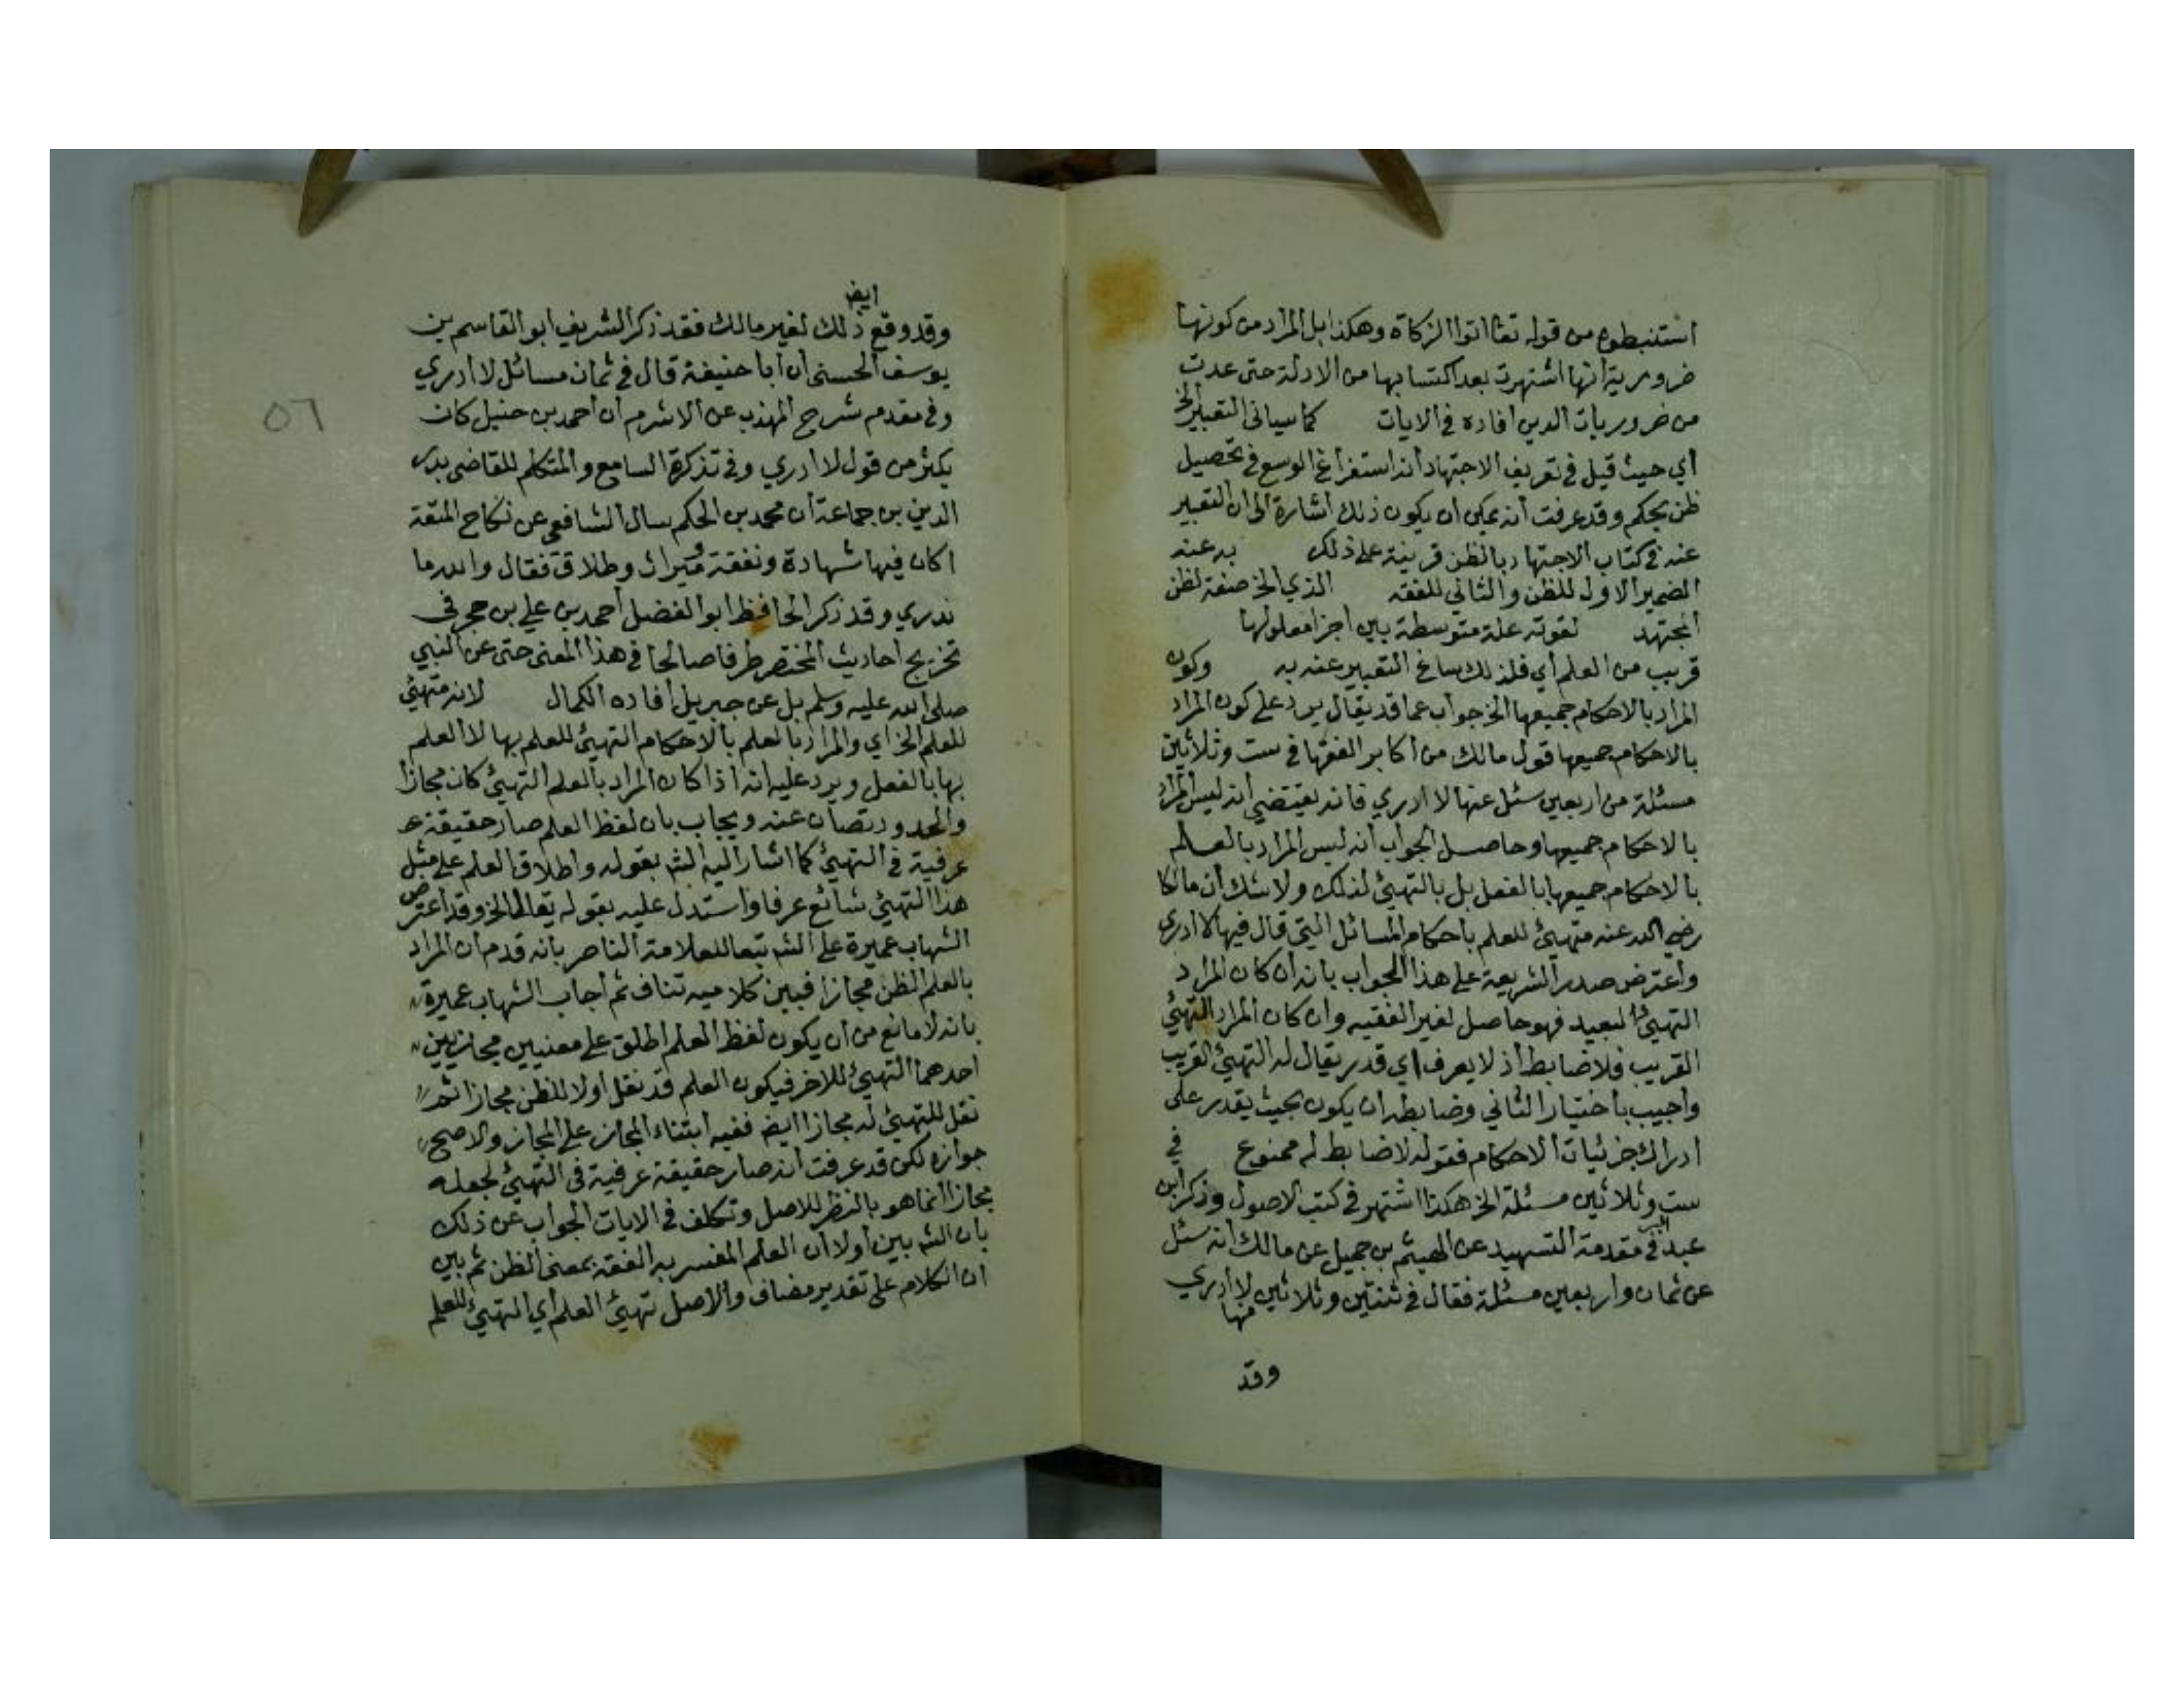 استنبطوه من قوله تعا اتوا الزكاة وهكذا بل المراد من كونها
ضرورية انها اشتهرت بعد اكتسابها من الادلة حتى عدت
من ضروريات الدين افاده في الايات كما سياتى التعبير الخ
أي حيث قيل في تعريف الاجتهاد انه استفراغ الوسع في تحصيل
ظن بحكم وقد عرفت أنه يمكن ان يكون ذلك اشارة الى ان التعبير
عنه في كتاب الاجتهاد بالظن قرينة على ذلك به عنه
الضمير الاول للظن والثاني للفقه الذي الخ صفة لظن
المجتهد لقوته علة متوسطة بين اجزا معلولها
قريب من العلم أي فلذلك ساغ التعبير عنه به وكون
المراد بالاحكام جميعها الخ جواب عما قد يقال يرد على كون المراد
بالاحكام جميعها قول مالك من اكابر الفقها في ست وثلاثين
مسئلة من اربعين سئل عنها لا ادري فانه يقتضي انه ليس المراد
بالاحكام جميعها وحاصل الجواب انه ليس المراد بالعلم
بالاحكام جميعها بالفعل بل بالتهيئ لذلك ولا شك أن مالكا
رضي الله عنه متهيئ للعلم بأحكام المسائل التي قال فيها لا ادرى
وأعترض صدر الشريعة على هذا الجواب بانه ان كان المراد
التهيئ البعيد فهو حاصل لغير الفقيه وان كان المراد التهيئ
القريب فلا ضابط اذ لا يعرف اي قدر يقال له التهيئ القريب
واجيب باختيار الثاني وضابطه ان يكون بحيث يقدر على
ادراك جزئيات الاحكام فقوله لا ضابط له ممنوع في
ست وثلاثين مسئلة الخ هكذا اشتهر في كتب الاصول وذكر ابن
عبد البر في مقدمة التمهيد عن الهيثم بن جميل عن مالك انه سئل
عن ثمان واربعين مسئلة فقال في ثنتين وثلاثين لا أدري
منها
وقد
ايض
وقد وقع ذلك لغير مالك فقد ذكر الشريف ابو القاسم بن
يوسف الحسنى ان أبا حنيفة قال في ثمان مسائل لا ادري
وفي مقدم شرح المهذب عن الاثرم ان أحمد بن حنبل كان
يكثر من قول لا ادري وفي تذكرة السامع والمتكلم للقاضى بدر
الدين بن جماعة ان محمد بن الحكم سال الشافعي عن نكاح المتعة
اكان فيها شهادة ونفقة وميراث وطلاق فقال والله ما
ندري وقد ذكر الحافظ ابو الفضل أحمد بن علي بن حجر في
تخريج أحاديث المختصر طرفا صالحا في هذا المعنى حتى عن النبي
صلى الله عليه وسلم بل عن جبريل أفاده الكمال لانه متهيئ
للعلم الخ اي والمراد بالعلم بالاحكام التهيئ للعلم بها لا العلم
بها بالفعل ويرد عليه انه اذا كان المراد بالعلم التهيئ كان مجازا
والحدود تصان عنه ويجاب بان لفظ العلم صار حقيقة
عرفية في التهيئ كما اشار اليه الشه بقوله واطلاق العلم على مثل
هذا التهيئ شائع عرفا واستدل عليه بقوله يقال الخ وقد أعترض
الشهاب عميرة على الشه تبعا للعلامة الناصر بانه قدم ان المراد
بالعلم الظن مجازا فبين كلاميه تناف ثم أجاب الشهاب عميرة
بانه لا مانع من ان يكون لفظ العلم اطلق على معنيين مجازيين
احدهما التهيئ للاخر فيكون العلم قد نقل اولا للظن مجازا ثم
نقل للتهيئ له مجازا ايض ففيه ابتناء المجاز على المجاز والاصح
جوازه لكن قد عرفت انه صار حقيقة عرفية في التهيئ لجعله
مجازا انما هو بالنظر للاصل وتكلف في الايات الجواب عن ذلك
بان الشه بين أولا ان العلم المفسر به الفقه بمعنى الظن ثم بين
ان الكلام على تقدير مضاف والاصل تهيئ العلم أي التهيئ للعلم
٥٦